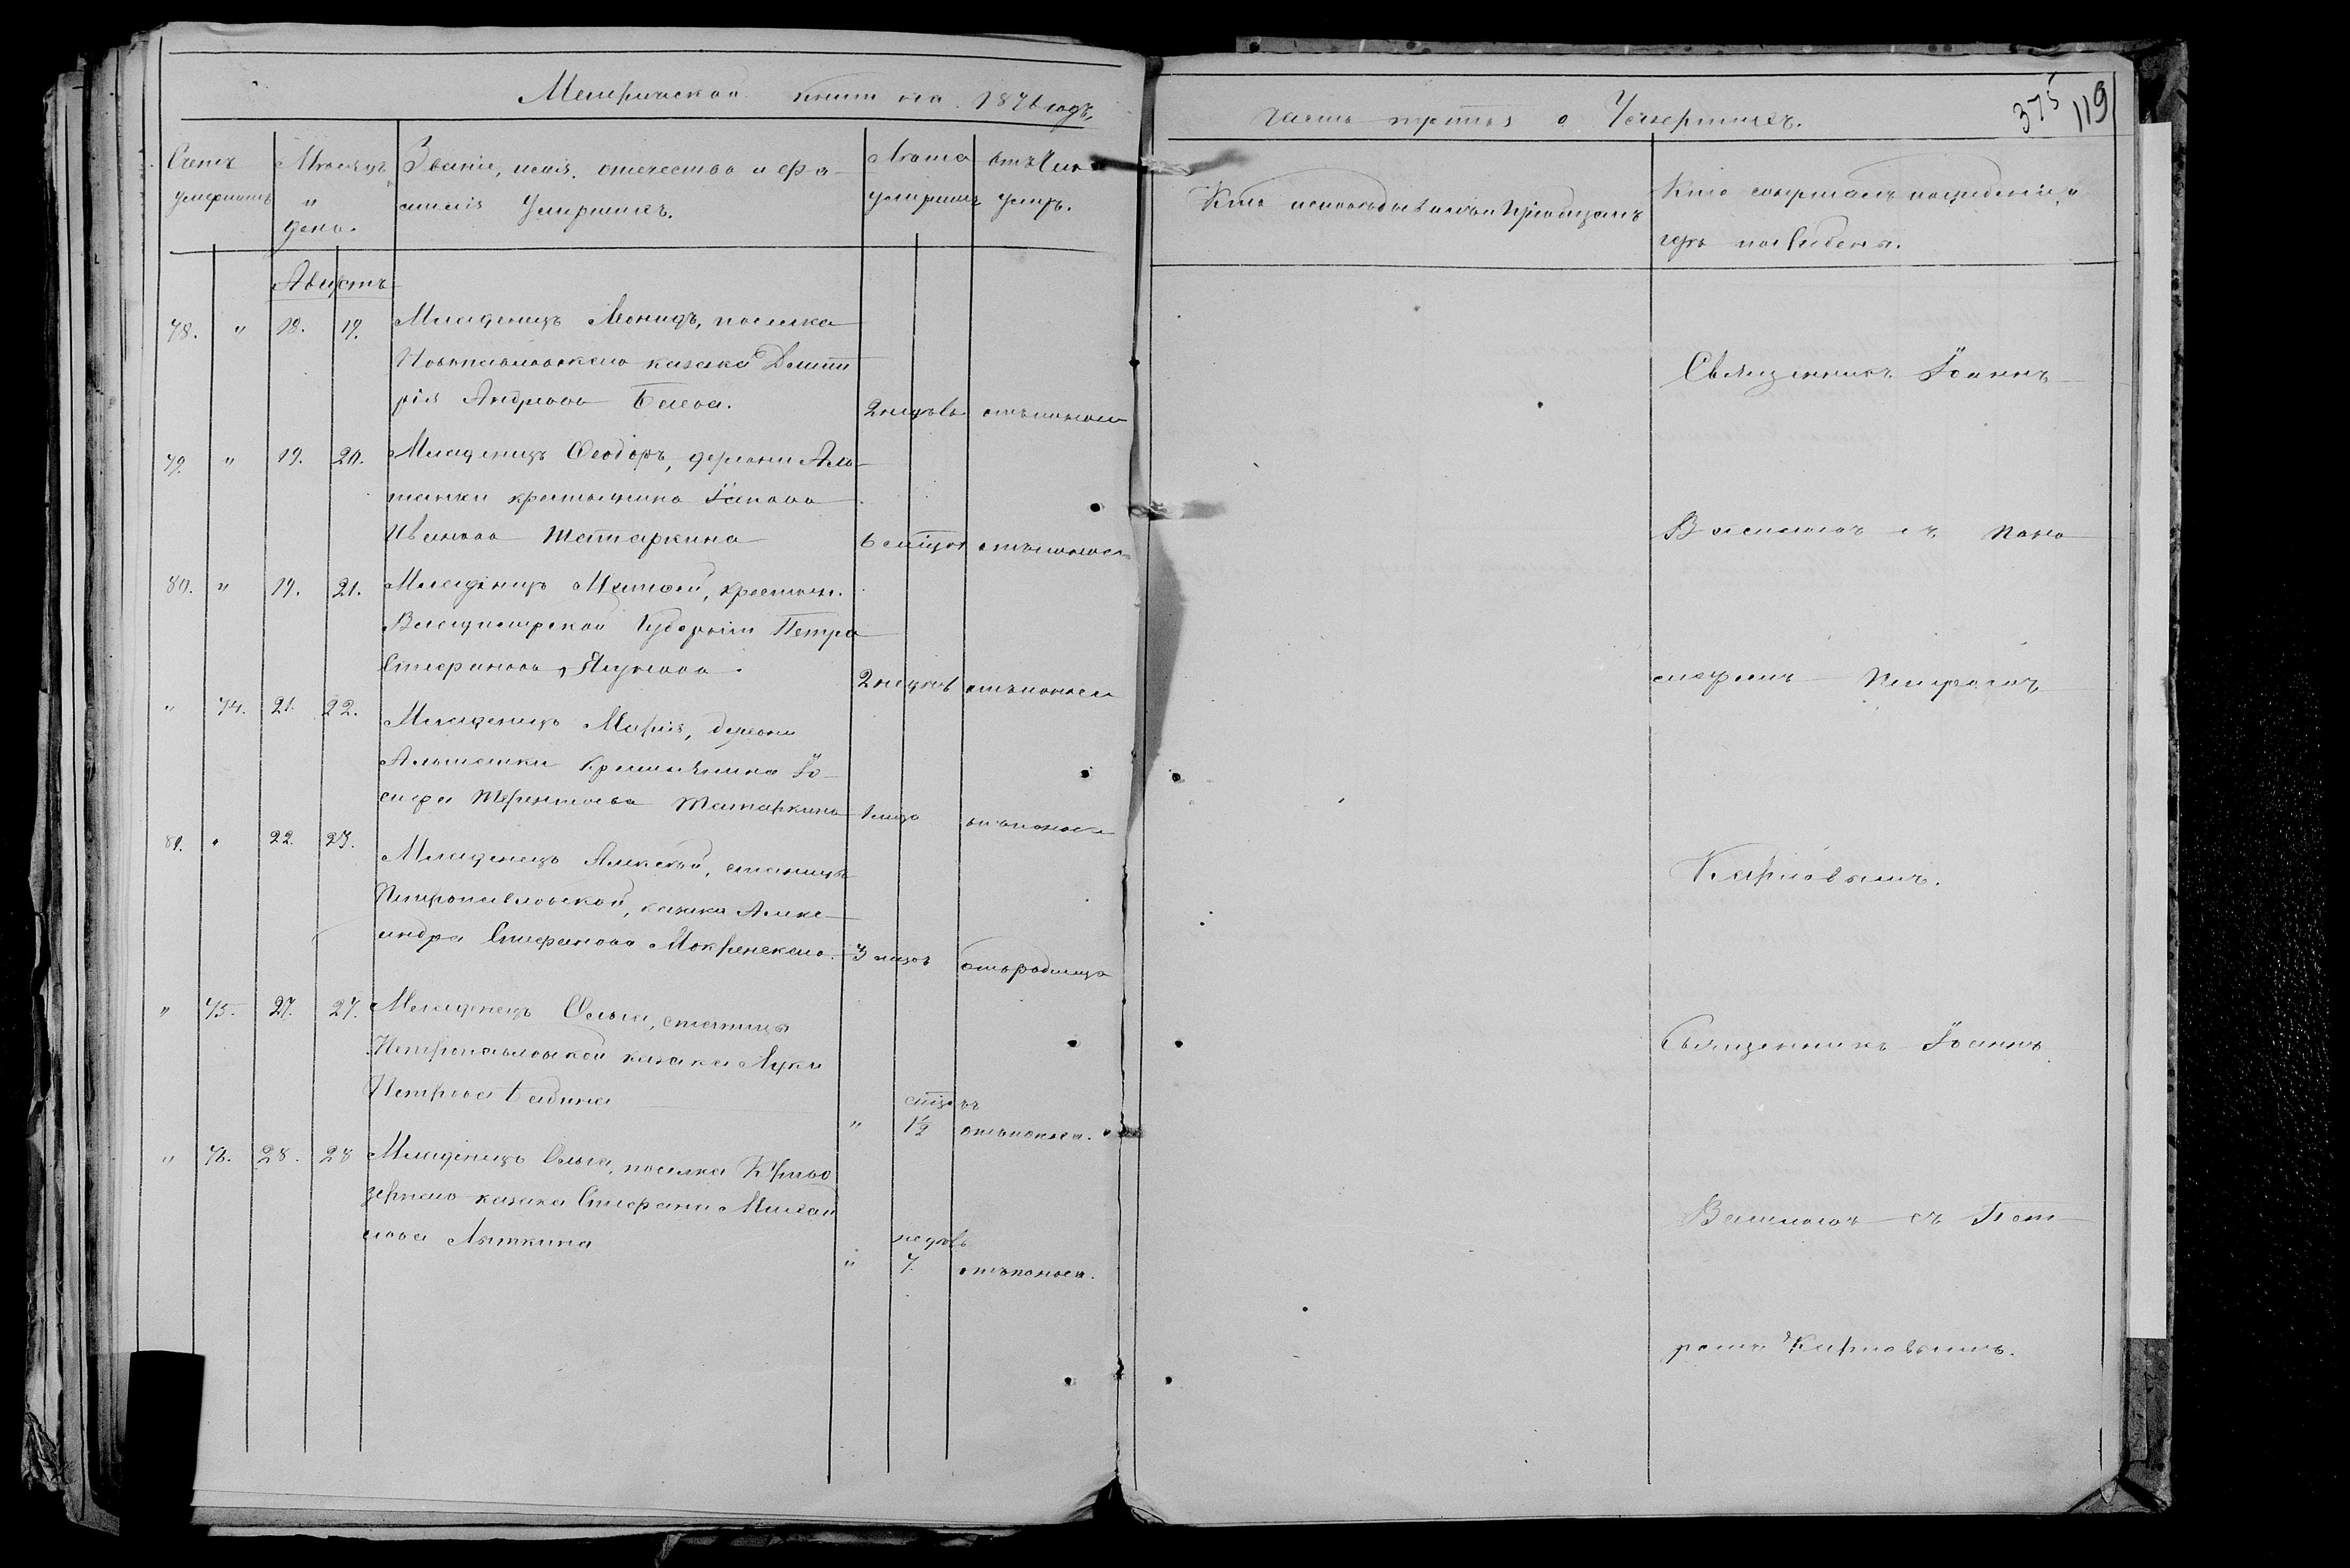 Метрической книги на 1876 годъ,
Счетъ умершихъ
Мѣсяцъ и день.
Званіе, имя, отечество и фа-
милія Умершихъ.
Лѣта умершихъ
Отъ чего умеръ.
Августъ
78. " 18. 19. Младенецъ Леонидъ, поселка
Новопавловскаго казака Дмит
рія Андреева Бѣлева. 2 недѣль отъ поноса
79. " 19. 20. Младенецъ Ѳеодоръ, деревни Аль-
танки крестьянина Іакова
Иванова Татаркина 6 мѣсяц. отъ поноса
80. " 19. 21. Младенецъ Матѳей, крестьян.
Владимірской Губерніи Петра
Стефанова 2 недѣль отъ поноса
" 74. 21. 22. Младенецъ Марія, деревни
Альтанки крестьянина Іо-
сифа Терентьева Татаркина 1 года отъ поноса
81. " 22. 23. Младенецъ Алексѣй, станицы
Петропавловской, казака Алекс
андра Стефанова Мокринскаго. 3 отъ родимца
" 75. 27. 27. Младенецъ Ольга, станицы
Петропавловской казака Луки
Петрова Бабина " 1½ отъ поноса.
" 76. 28. 28 Младенецъ Ольга, поселка Кривоо
зернаго казака Стефана Михаи
лова Лыткина
недѣль
" 7. отъ поноса.
Часть третья о Умершихъ.
375 119
Кто исповѣдывалъ и пріобщалъ
Кто совершалъ погребеніе, и
гдѣ погребены.
Священникъ Іоаннъ
съ Псало
мщикомъ Петромъ
Карповымъ.
Священникъ Іоаннъ
съ Пет
ромъ Карповымъ.